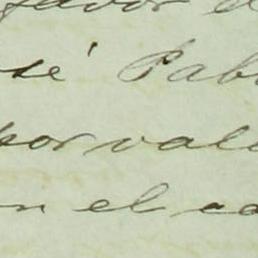 favor d
sé Pab
por valo
n el ca